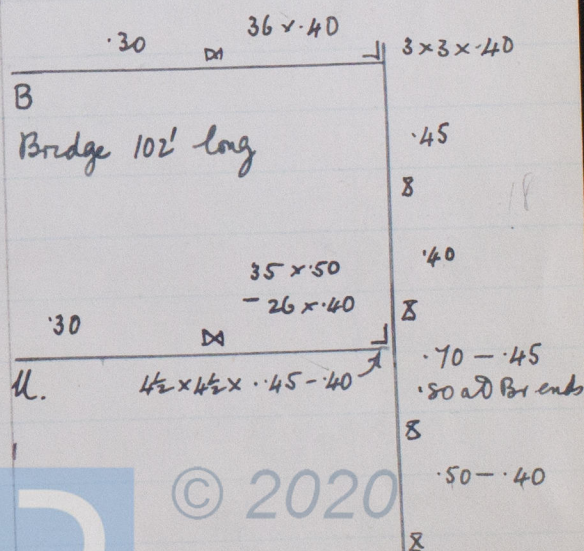 ·30 36 × ·40
3×3×·40
B
Bridge 102' long
·45
8
18
·40
35 × ·50
- 26 × ·40
8
·30
·70 — ·45
U. 4½×4½× ··45-·40
·80 at Br ends
8
·50 — ·40
© 2020
8